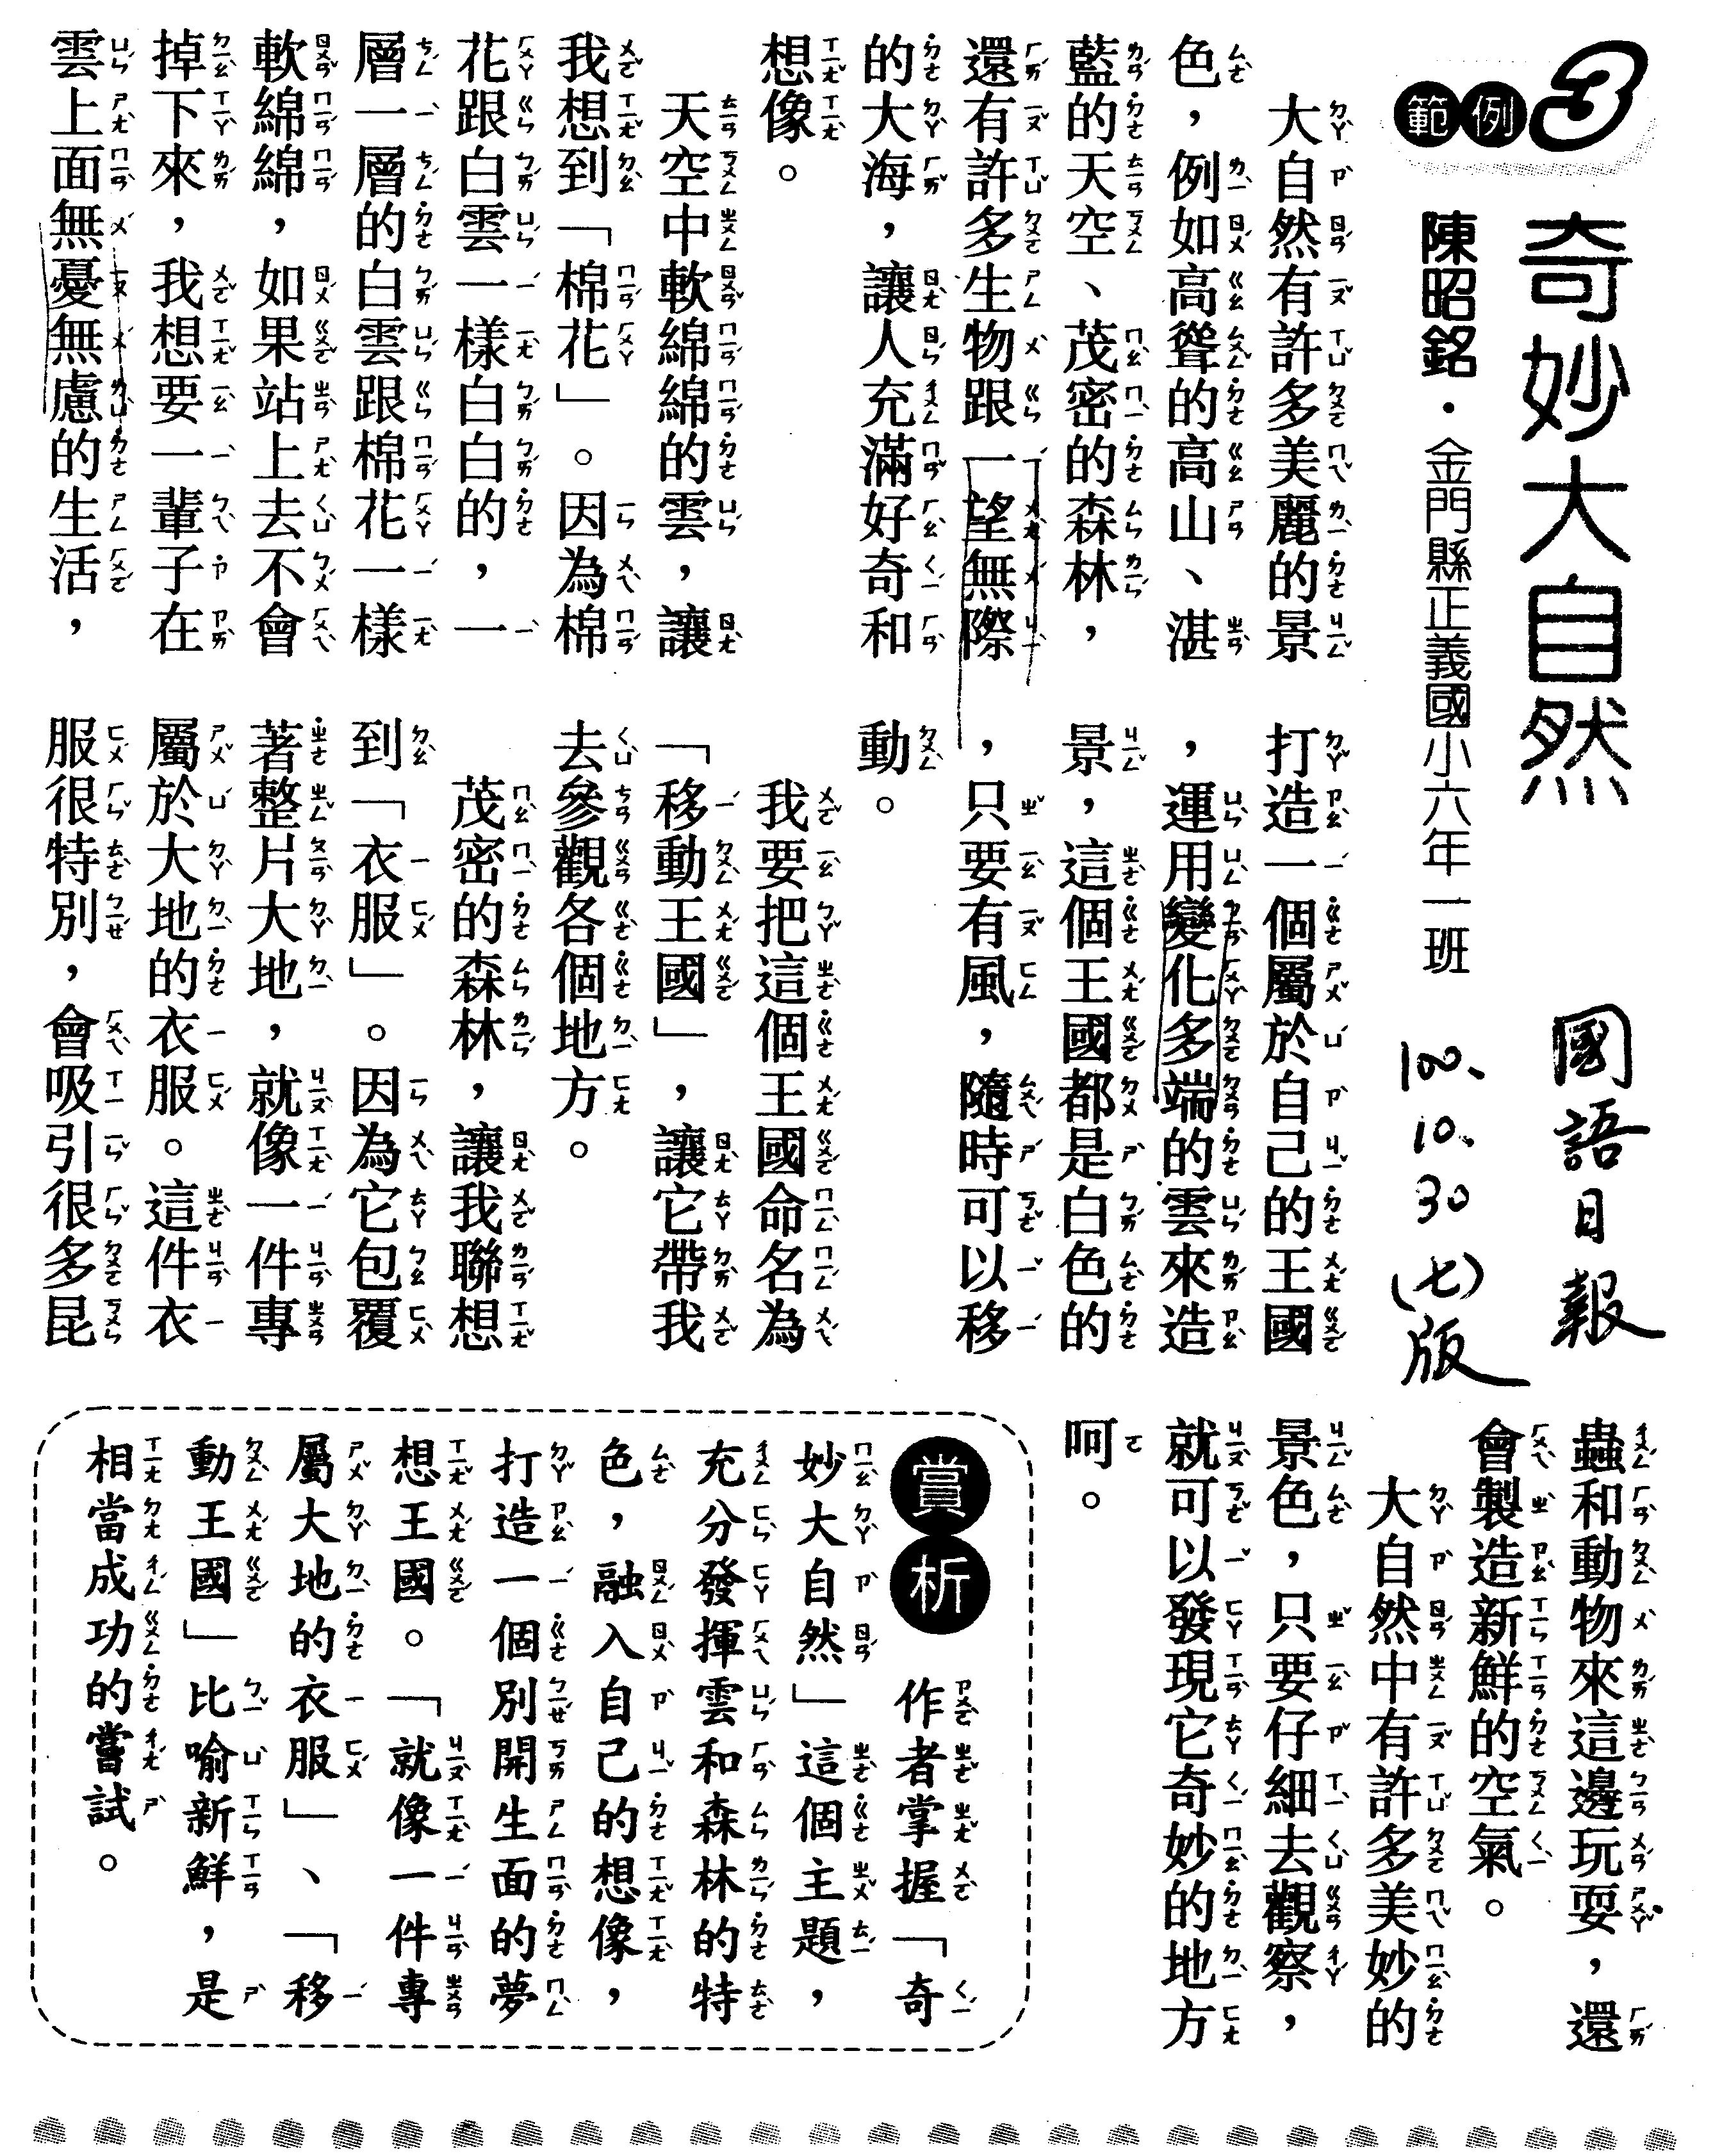 範例3
奇妙大自然
陳昭銘・金門縣正義國小六年一班
國語日報
100、10、30(七)版
大自然有許多美麗的景
色，例如高聳的高山、湛
藍的天空、茂密的森林，
還有許多生物跟一望無際
的大海，讓人充滿好奇和
想像。
天空中軟綿綿的雲，讓
我想到「棉花」。因為棉
花跟白雲一樣白白的，一
層一層的白雲跟棉花一樣
軟綿綿，如果站上去不會
掉下來，我想要一輩子在
雲上面無憂無慮的生活，
打造一個屬於自己的王國
，運用變化多端的雲來造
景，這個王國都是白色的
，只要有風，隨時可以移
動。
我要把這個王國命名為
「移動王國」，讓它帶我
去參觀各個地方。
茂密的森林，讓我聯想
到「衣服」。因為它包覆
著整片大地，就像一件專
屬於大地的衣服。這件衣
服很特別，會吸引很多昆
蟲和動物來這邊玩耍，還
會製造新鮮的空氣。
大自然中有許多美妙的
景色，只要仔細去觀察，
就可以發現它奇妙的地方
呵。
賞析
作者掌握「奇
妙大自然」這個主題，
充分發揮雲和森林的特
色，融入自己的想像，
打造一個別開生面的夢
想王國。「就像一件專
屬大地的衣服」、「移
動王國」比喻新鮮，是
相當成功的嘗試。